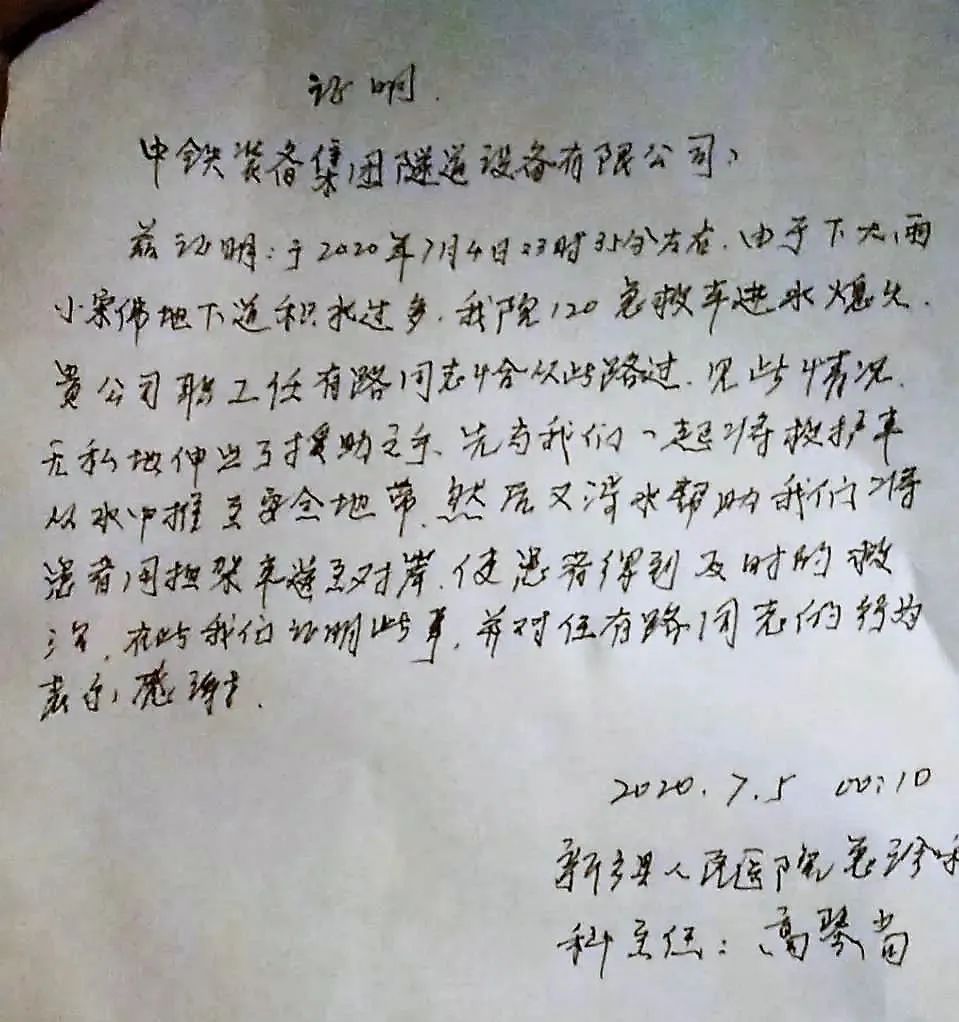 证明.
中铁装备集团隧道设备有限公司:
兹证明:于2020年7月4日23时35分左右.由于下大雨
小宋佛地下道积水过多.我院120急救车进水熄火.
贵公司职工任有路同志恰从此路过.见此情况.
无私地伸出了援助之手、先与我们一起将救护车
从水中推至安全地带.然后又淌水帮助我们将
患者用担架车送至对岸.使患者得到及时的救
治,在此我们证明此事,并对任有路同志的行为
表示感谢.
2020.7.5 00:10
新乡县人民医院急诊
科主任:高